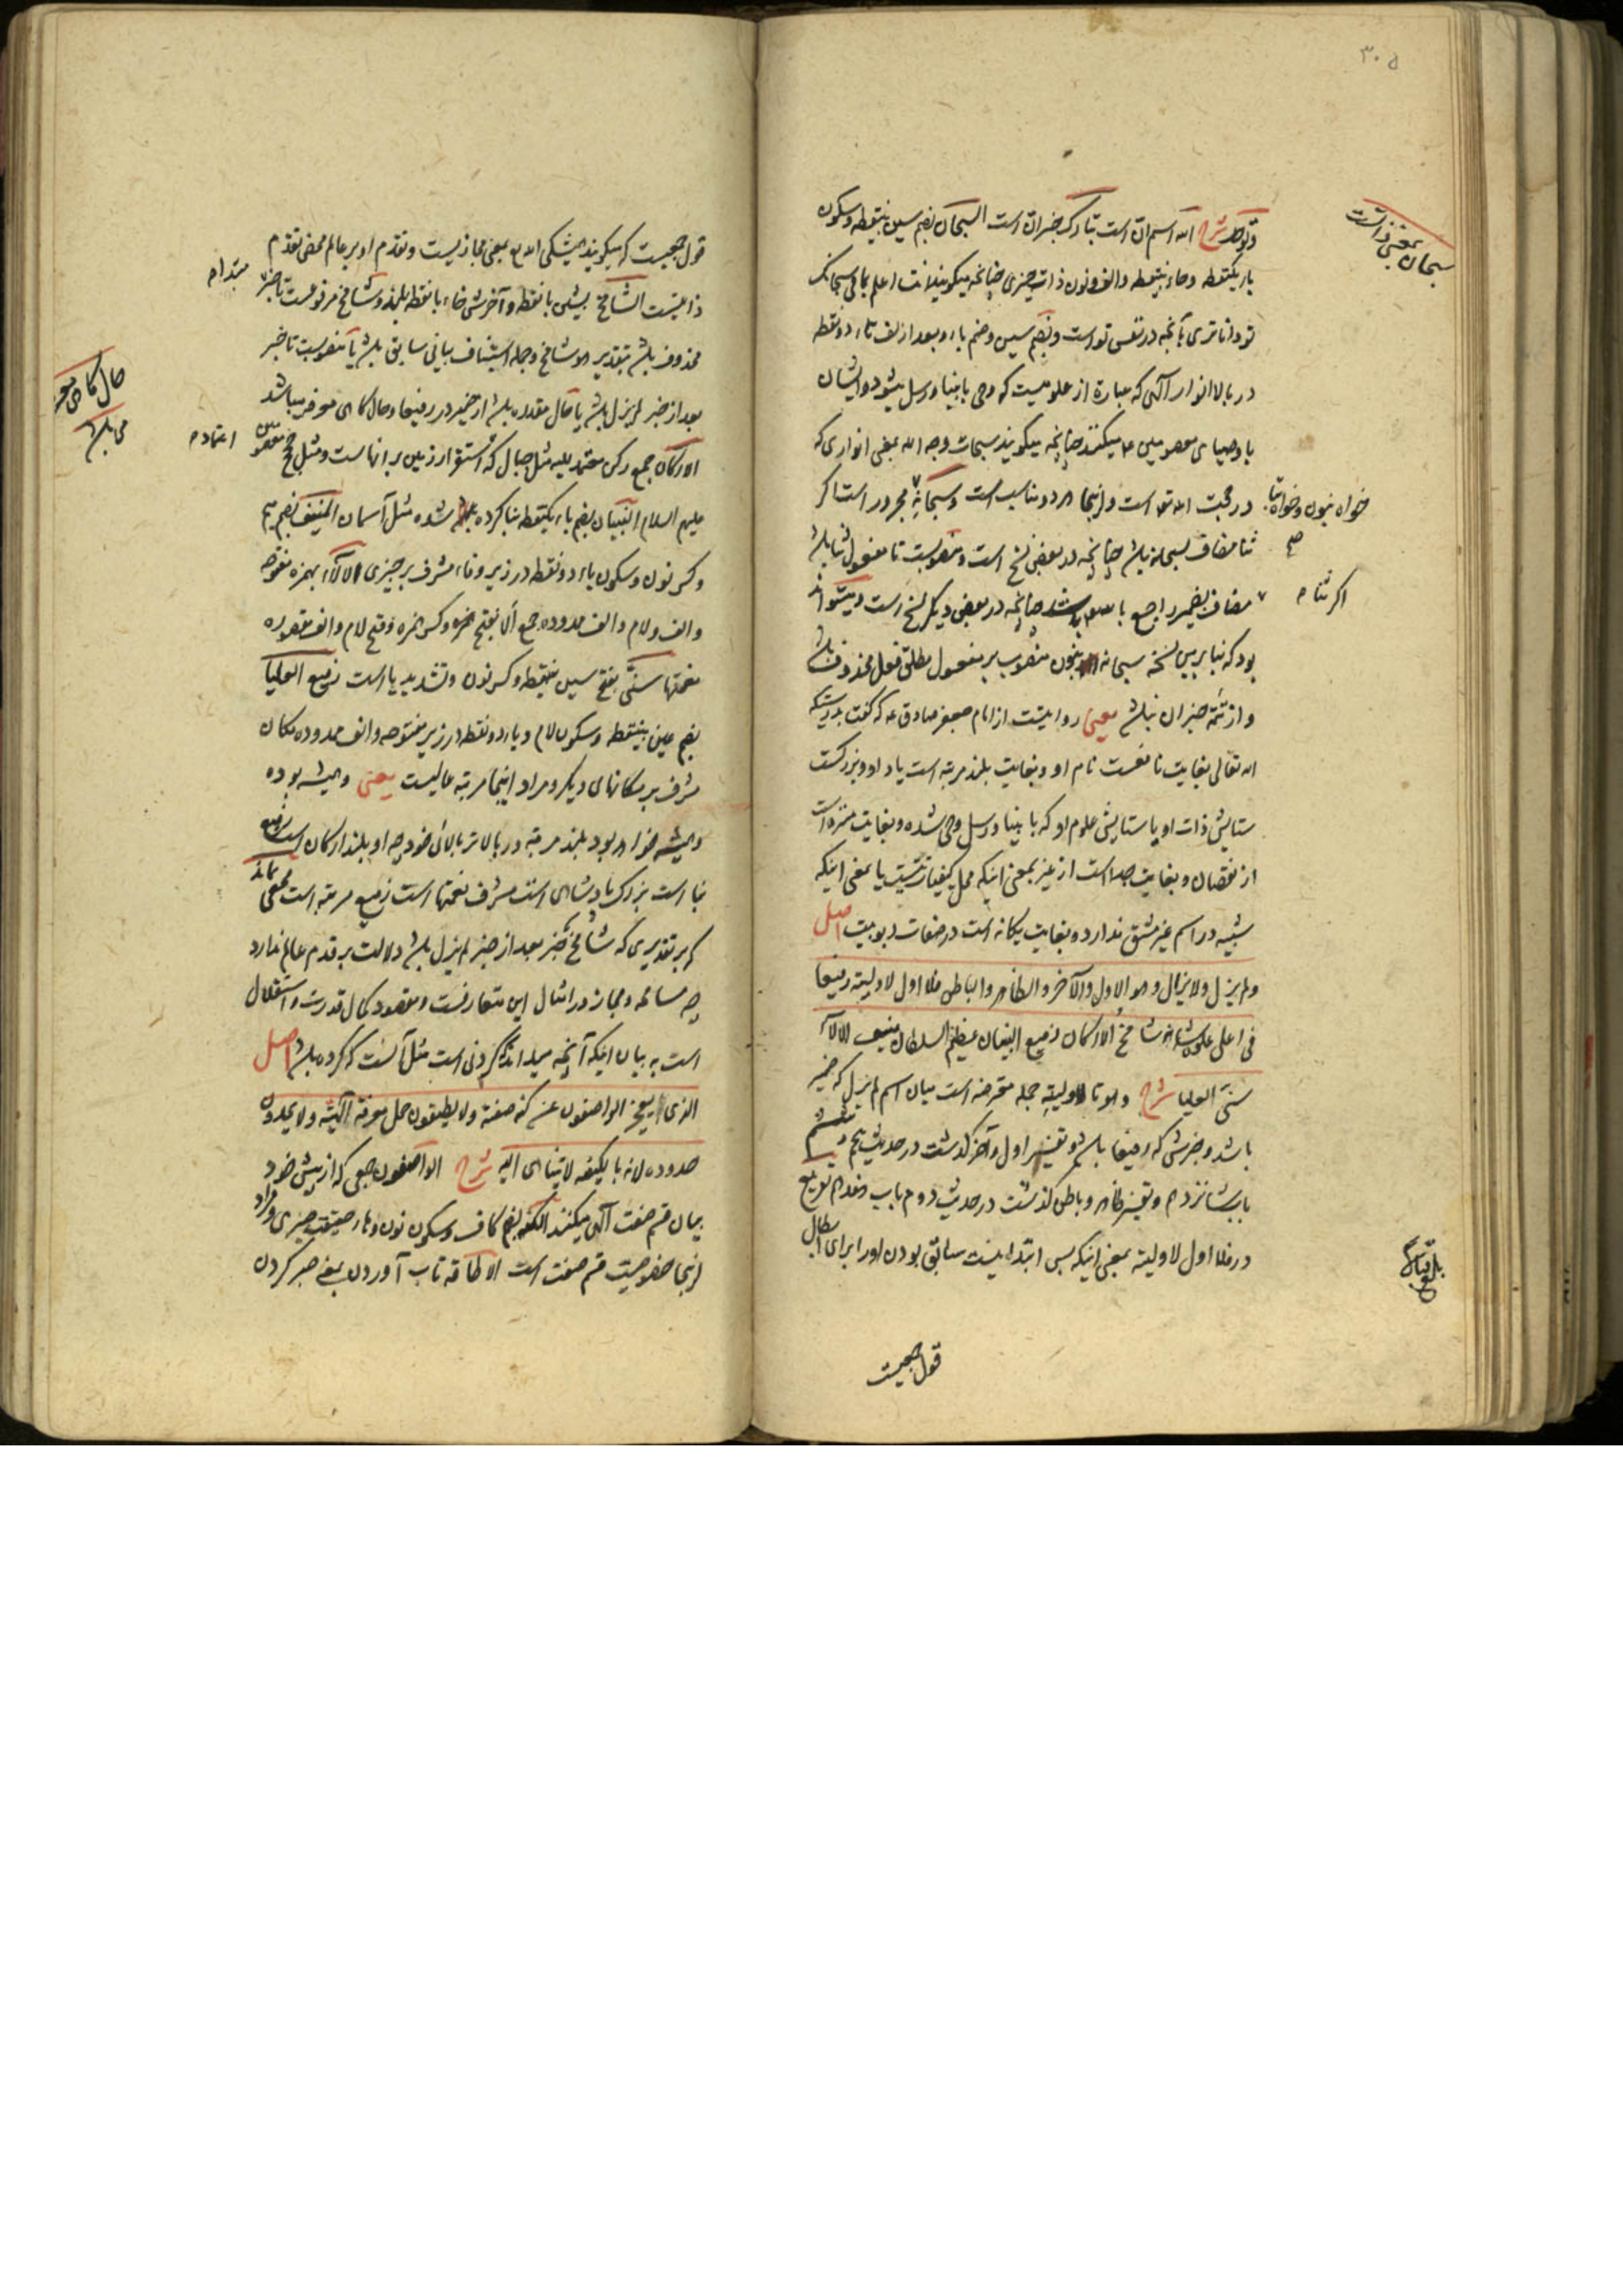 ۳۰۵
سبحان بمعنی ذاتست
وتوحّد شرح الله اسم ان است تبارک خبر ان است السبحان بضم سین بینقطه و سکون
باء یکنقطه و حاء بینقطه والف و نون ذات چیزی چنانچه میگویند انت اعلم بما فی سبحانک
تو داناتری بآنچه در نفس تو است و بضم سین و ضم باء و بعد از الف تاء دو نقطه
در بالا انوار آلهی که عبارة از علومیست که وحی بانبیا و رسل میشود و ایشان
باوصیای معصومین ع میکنند چنانچه میگویند سبحات وجه الله بمعنی انواری که
در حجت الله تعا است و اینجا هر دو مناسب است و سبحانه مجرور است اگر
خواه بنون و خواه بتا
ثنا مضاف بسبحانه باشد چنانچه در بعضی نسخ است و منصوبست تا مفعول ثنا باشد
اگر ثنا
مضاف بضمیر راجع بالله باشد چنانچه در بعضی دیگر نسخ است و میتواند
بود که بنا بر این نسخه سبحانه بنون منصوب بر مفعول مطلق فعل محذوف باشد
و از تتمّه خبر ان نباشد یعنی روایتست از امام جعفر صادق ع که گفت بدرستیکه
الله تعالی بغایت نافعست نام او و بغایت بلند مرتبه است یاد او و بزرگست
ستایش ذات او یا ستایش علوم او که بانبیا و رسل وحی شده و بغایت منزه است
از نقصان و بغایت جداست از غیر بمعنی اینکه محل کیفیات نیست یا بمعنی اینکه
شبیه در اسم غیر مشتق ندارد و بغایت یگانه است در صفات ربوبیت اصل
ولم یزل ولا یزال وهو الاول والآخر والظاهر والباطن فلا اول لاولیته رفیعا
فی اعلی علوه شامخ الارکان رفیع البنیان عظیم السلطان منیف الالاء
سنیّ العلیا شرح وهو تا لاولیته جمله معترضه است میان اسم لم یزل که ضمیر
باشد و خبرش که رفیعا باشد و تفسیر اول و آخر گذشت در حدیث پنجم و ششم
باب شانزدهم و تفسیر ظاهر و باطن گذشت در حدیث دوم باب هفدهم تفریع
در فلا اول لاولیته بمعنی اینکه پس ابتدا نیست سابق بودن او را برای ابطال
قول جمعیست
قول جمعیست که میگویند همیشگی الله تع بمعنی مجازیست و تقدم او بر عالم محض تقدم
ذاتیست الشامخ بشین بانقطه و آخرش خاء بانقطه بلند و شامخ مرفوعست تا خبر
مبتداء
محذوف باشد بتقدیر هو شامخ و جمله استیناف بیانی سابق باشد یا منصوبست تا خبر
بعد از خبر لم یزل باشد یا حال مقدره باشد از ضمیر در رفیعا و حال گاهی معرفه میباشد
حال گاهی معرفه
می باشد
الارکان جمع رکن معتمد علیه مثل جبال که استقرار زمین بر آنهاست و مثل حجج معصومین
اعتماده
علیهم السلام البنیان بضم باء یکنقطه بنا کرده شده مثل آسمان المنیف بضم میم
و کسر نون و سکون یاء دو نقطه در زیر و فاء مشرف بر چیزی الالاء بهمزه مفتوحه
و الف و لام و الف ممدوده جمع ألا بفتح همزه و کسر همزه و فتح لام و الف مقصوره
نعمتها سنیّ بفتح سین بینقطه و کسر نون و تشدید یا است رفیع العلیا
بضم عین بینقطه و سکون لام و یاء دو نقطه در زیر مفتوحه و الف ممدوده مکان
مشرف بر مکانهای دیگر و مراد اینجا مرتبه عالیست یعنی و همیشه بوده
و همیشه خواهد بود بلند مرتبه در بالاتر بالائی خود چه او بلند ارکان است رفیع
بنا است بزرگ پادشاهی است مشرف نعمتها است رفیع مرتبه است مخفی نماند
که بر تقدیری که شامخ خبر بعد از خبر لم یزل باشد دلالت بر قدم عالم ندارد
چه مسامحه و مجاز در امثال این متعارفست و مقصود کمال قدرت و استقلال
است به بیان اینکه آنچه میداند کردنی است مثل آنست که کرده باشد اصل
الذی یعجز الواصفون عن کنه صفته ولا یطیقون حمل معرفة آلهیّته ولا یحدّون
حدوده لانه بالکیفیه لا یتناهی الیه شرح الواصفون جمعی که از پیش خود
بیان قسم صفت آلهی میکنند الکنه بضم کاف و سکون نون و هاء حقیقت چیزی و مراد
اینجا خصوصیت قسم صفت است الاطاقه تاب آوردن بمعنی صبر کردن